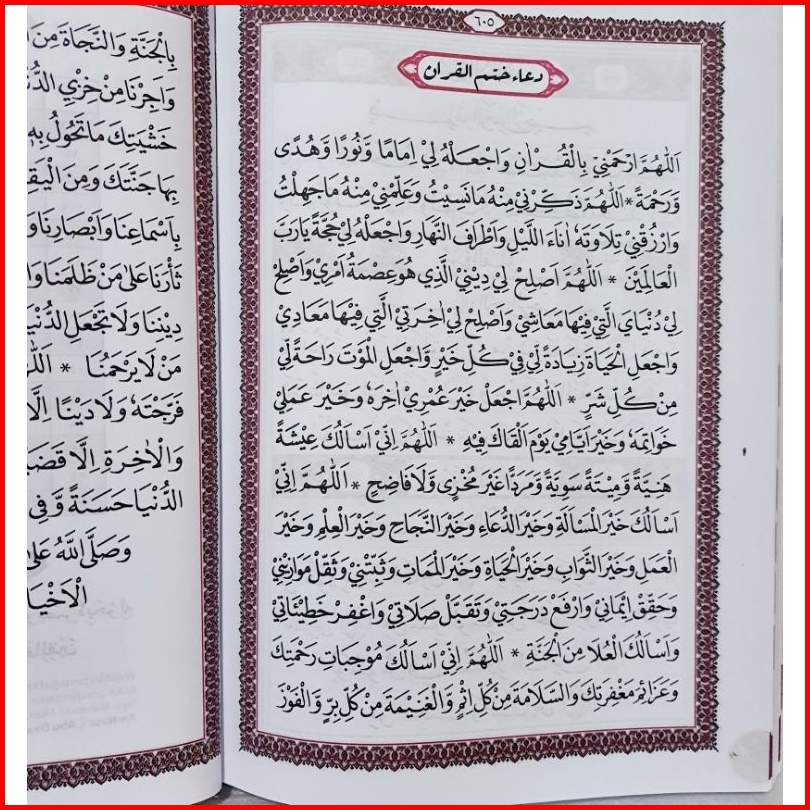 ٦٠٥
دعاء ختم القران
اَللّٰهُمَّ ارْحَمْنِيْ بِالْقُرْاٰنِ وَاجْعَلْهُ لِيْ اِمَامًا وَّنُوْرًا وَّهُدًى
وَّرَحْمَةً * اَللّٰهُمَّ ذَكِّرْنِيْ مِنْهُ مَانَسِيْتُ وَعَلِّمْنِيْ مِنْهُ مَاجَهِلْتُ
وَارْزُقْنِيْ تِلَاوَتَهٗ اٰنَاءَ اللَّيْلِ وَاَطْرَافَ النَّهَارِ وَاجْعَلْهُ لِيْ حُجَّةً يَارَبَّ
الْعَالَمِيْنَ * اَللّٰهُمَّ اَصْلِحْ لِيْ دِيْنِيْ الَّذِيْ هُوَعِصْمَةُ اَمْرِيْ وَاَصْلِحْ
لِيْ دُنْيَايَ الَّتِيْ فِيْهَا مَعَاشِيْ وَاَصْلِحْ لِيْ اٰخِرَتِيْ الَّتِيْ فِيْهَا مَعَادِيْ
وَاجْعَلِ الْحَيَاةَ زِيَادَةً لِّيْ فِيْ كُلِّ خَيْرٍ وَّاجْعَلِ الْمَوْتَ رَاحَةً لِّيْ
مِنْ كُلِّ شَرٍّ * اَللّٰهُمَّ اجْعَلْ خَيْرَ عُمْرِيْ اٰخِرَهٗ وَخَيْرَ عَمَلِيْ
خَوَاتِمَهٗ وَخَيْرَ اَيَّامِيْ يَوْمَ اَلْقَاكَ فِيْهِ * اَللّٰهُمَّ اِنِّيْ اَسْاَلُكَ عِيْشَةً
هَنِيَّةً وَّمِيْتَةً سَوِيَّةً وَّمَرَدًّا غَيْرَ مُخْزِى وَّلَا فَاضِحٍ * اَللّٰهُمَّ اِنِّيْ
اَسْاَلُكَ خَيْرَ الْمَسْاَلَةِ وَخَيْرَ الدُّعَاءِ وَخَيْرَ النَّجَاحِ وَخَيْرَ الْعِلْمِ وَخَيْرَ
الْعَمَلِ وَخَيْرَ الثَّوَابِ وَخَيْرَ الْحَيَاةِ وَخَيْرَ الْمَمَاتِ وَثَبِّتْنِيْ وَثَقِّلْ مَوَازِيْنِيْ
وَحَقِّقْ اِيْمَانِيْ وَارْفَعْ دَرَجَتِيْ وَتَقَبَّلْ صَلَاتِيْ وَاغْفِرْ خَطِيْئَاتِيْ
وَاَسْاَلُكَ الْعُلَا مِنَ الْجَنَّةِ * اَللّٰهُمَّ اِنِّيْ اَسْاَلُكَ مُوْجِبَاتِ رَحْمَتِكَ
وَعَزَائِمَ مَغْفِرَتِكَ وَالسَّلَامَةَ مِنْ كُلِّ اِثْمٍ وَّالْغَنِيْمَةَ مِنْ كُلِّ بِرٍّ وَّالْفَوْزَ
بِالْجَنَّةِ وَالنَّجَاةَ مِنَ
وَاَجِرْنَا مِنْ خِزْيِ
خَشْيَتِكَ مَا تَحُوْلُ بِهٖ
بِهَا جَنَّتَكَ وَمِنَ
بِاَسْمَاعِنَا وَاَبْصَارِنَا
ثَأْرَنَا عَلٰى مَنْ ظَلَمَنَا
دِيْنِنَا وَلَا تَجْعَلِ
مَنْ لَا يَرْحَمُنَا *
فَرَّجْتَهٗ وَلَا دَيْنًا
وَالْاٰخِرَةِ اِلَّا
الدُّنْيَا حَسَنَةً وَّفِى
وَصَلَّى اللّٰهُ